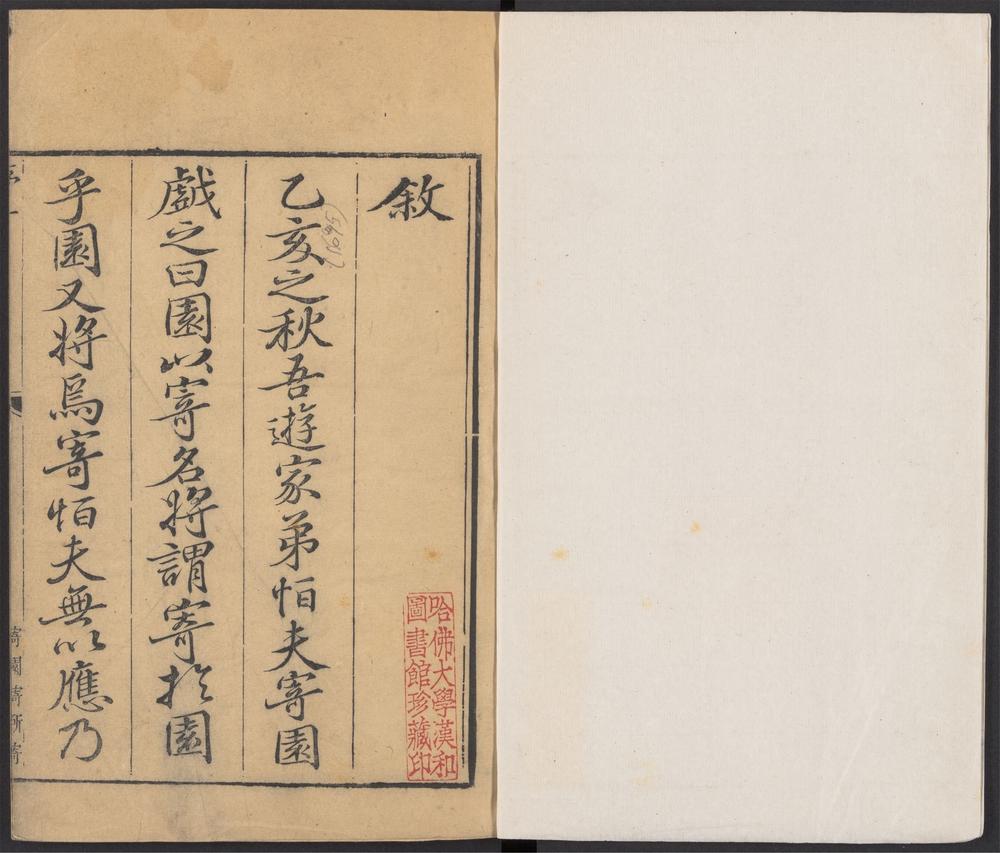 敘
乙亥之秋吾遊家弟怕夫寄園
戲之曰園以寄名將謂寄於園
乎園又將爲寄怕夫無以應乃
寄園寄所寄
哈佛大學漢和
圖書館珍藏印